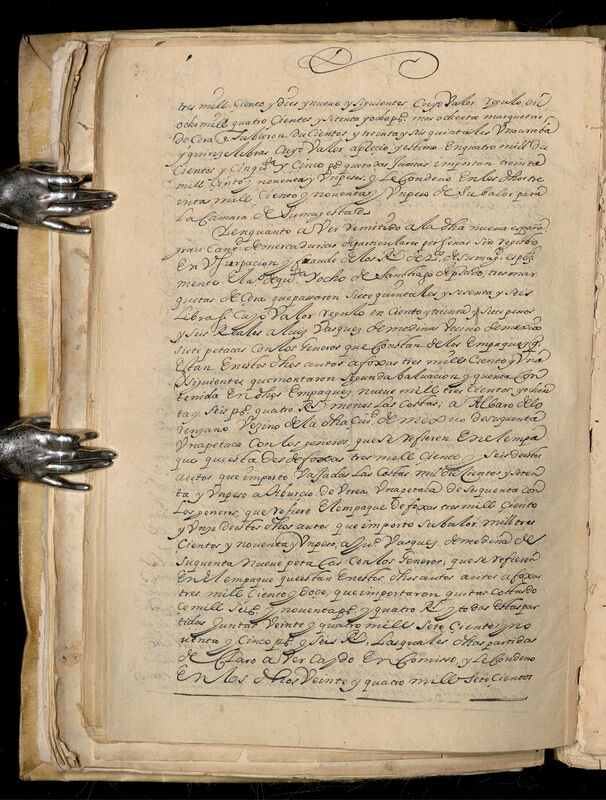 tres mill Ciento y diez y nueve y siguientes Cuyo Valor regulo en
ocho mill quatro Cientos y setenta y ocho ps mas ochenta marquetas
de Cera q tubieron du Cientos y treinta y seis quintales Una arroba
y quinze libras Cuyo Valor aplecio y estimo En quatro mill du
Cientos y Cinqta y Cinco ps que todas juntas importan treinta
mill Ciento y noventa y Un pesos y le Condeno En los dhos tre
inta mill Ciento y noventa y Un peso de Su balor para
La Camara de Su magestad
Y en quanto a Ver remitido a la dha nueva españa
gran Cantd de mercadurias de particulares personas Sin registro
En Vsurpacion y fraude de los Rs ds de Su magd espeçial
mente En la Requa Vocho de Santhiago de prado, tres mar
quetas de Cera que pasaron Siete quintales y sesenta y seis
libras Cuyo Valor regulo en Ciento y treinta y siete pesos
y seis Reales a luis Vasquez de medina Vecino de mexico
siete petacas Con los generos que Constan de los Empaques q
Estan En estos dhos autos a foxas tres mill Ciento y Una
y siguientes que montaron segunda baluacion y quenta Con
tenida En dhos Empaques nueve mill tres Cientos y ochen
ta y seis ps quatro Rs menos Las Costas; a Albaro de lo
renzano Vezino de la dha Ciud de mexico de su quenta
Una petaca Con los generos que se refieren En el empa
que que esta desde foxas tres mill Ciento y seis destos
autos que importo Vajadas Las Costas mill du Cientos y seten
ta y Un peso a tiburcio de Vrrea Una petaca de su quenta con
Los generos, que refiere El empaque de foxas tres mill Ciento
y Uno de estos dhos autos que importo Su balor mill tres
Cientos y noventa y Un peso, a Juo Vasquez de medina de
Su quenta Nueve petacas Con los Generos; que se refieren
En el empaque que estan En estos dhos autos a foxas
tres mill Ciento y doce, que importaron quitas Costas do
Ce mill Seisos y noventa ps y quatro Rs y todas Estas par
tidas Juntas Veinte y quatro mill Sete Cientos y no
venta y Cinco ps y Seis Rs, Las quales dhas partidas
de Claro a Ver Caydo En Comiso, y le Condeno
En los dhos Veinte y quatro mill Sete Cientos